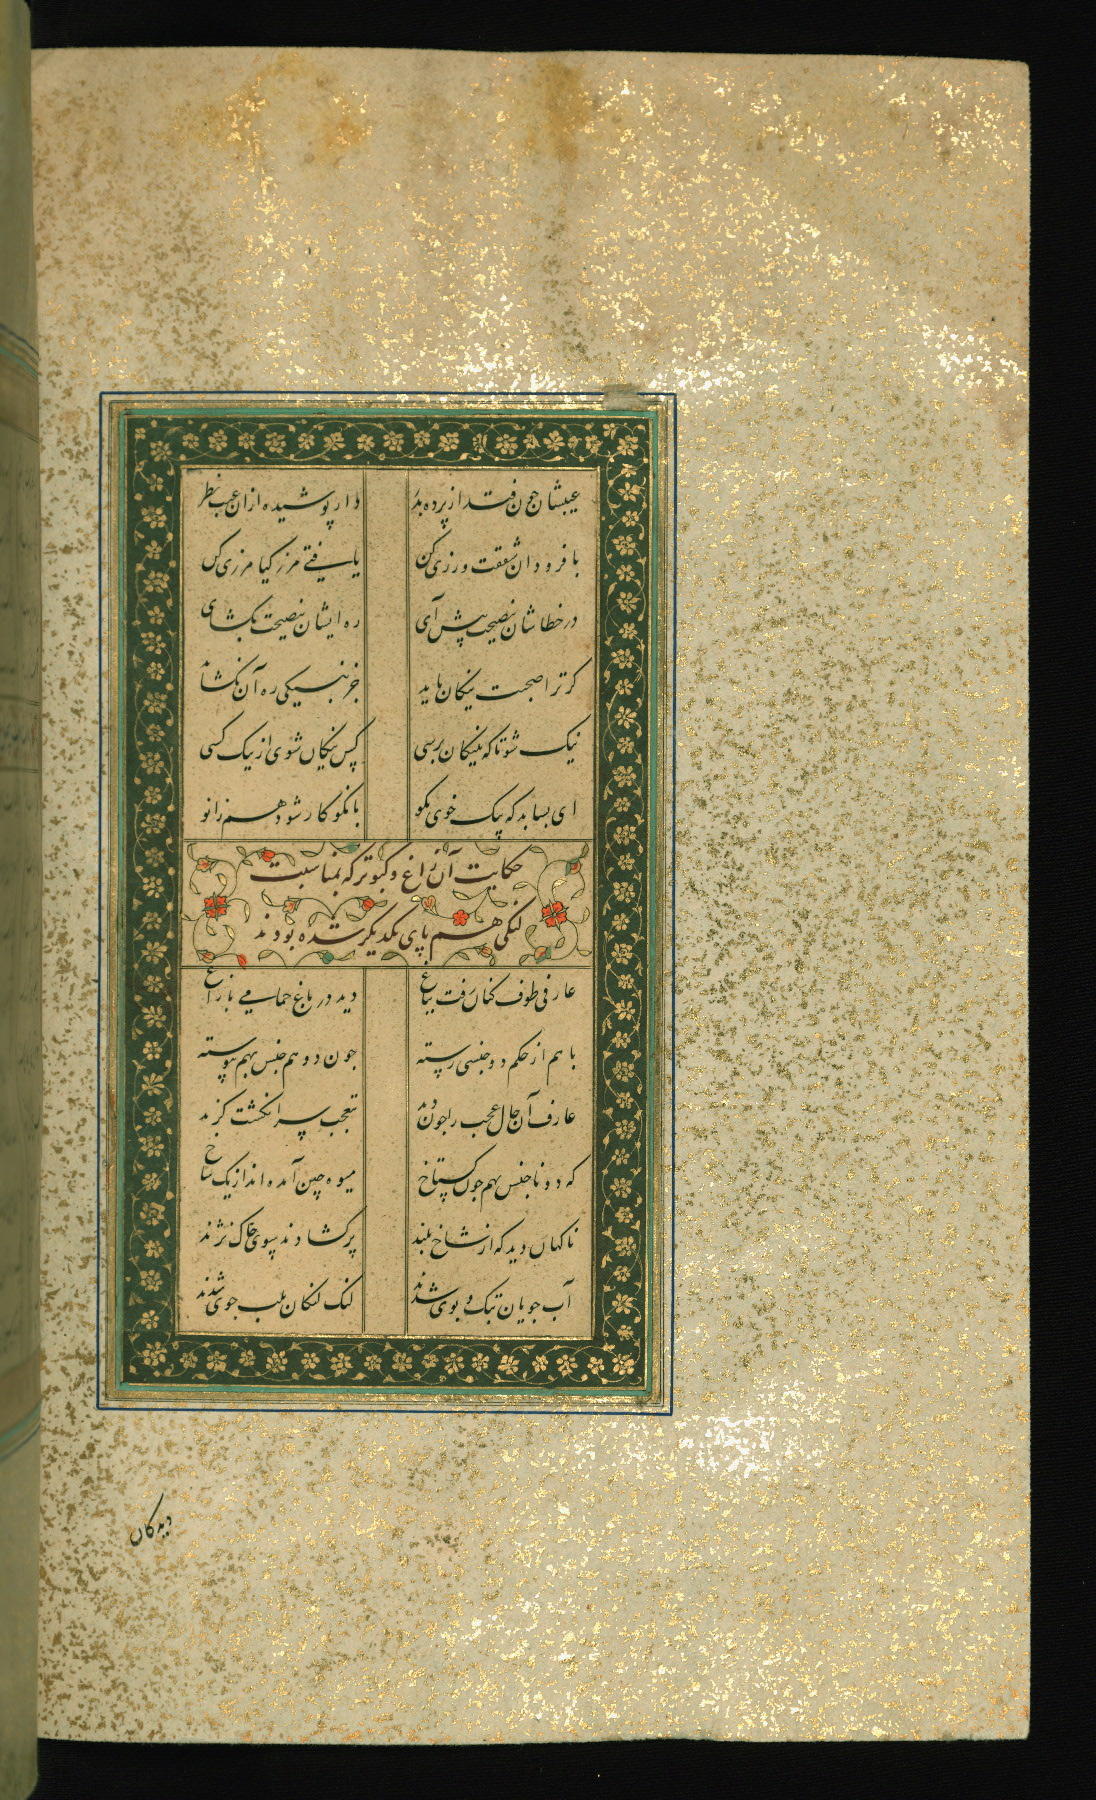 عیبشان چون فتد از پرده بدر دار پوشیده ازان عیب نظر
با فرودان شفقت ورزی کن یافتی مرز کیا مرزی کن
در خطاشان نصیحت پیش آی ره ایشان نصیحت بگشای
کر ترا صحبت نیکان باید جز نیکی ره آن نکشاید
نیک شو تا که بنیکان برسی کس نیکان شوی از نیک کسی
ای بسا بد که نیک خوی نکو با نکو کار شود هم زانو
حکایت آن زاغ و کبوتر که بمناسبت
لنکی هم پای یکدیکر شده بودند
عارفی طوف کنان رفت بباغ دید در باغ حمامی با زاغ
با هم از حکم دو جنسی رسته جون دو هم جنس بهم پیوسته
عارف آن حال عجب را جون دید بتعجب سر انکشت کزید
که دو ناجنس بهم جون کستاخ میوه چین آمده اند از یک شاخ
ناکهان دید که از شاخ بلند پر کشادند بسوی خاک نژند
آب جویان تک و پوی شدند لنک لنکان بلب جوی شدند
دیدکان